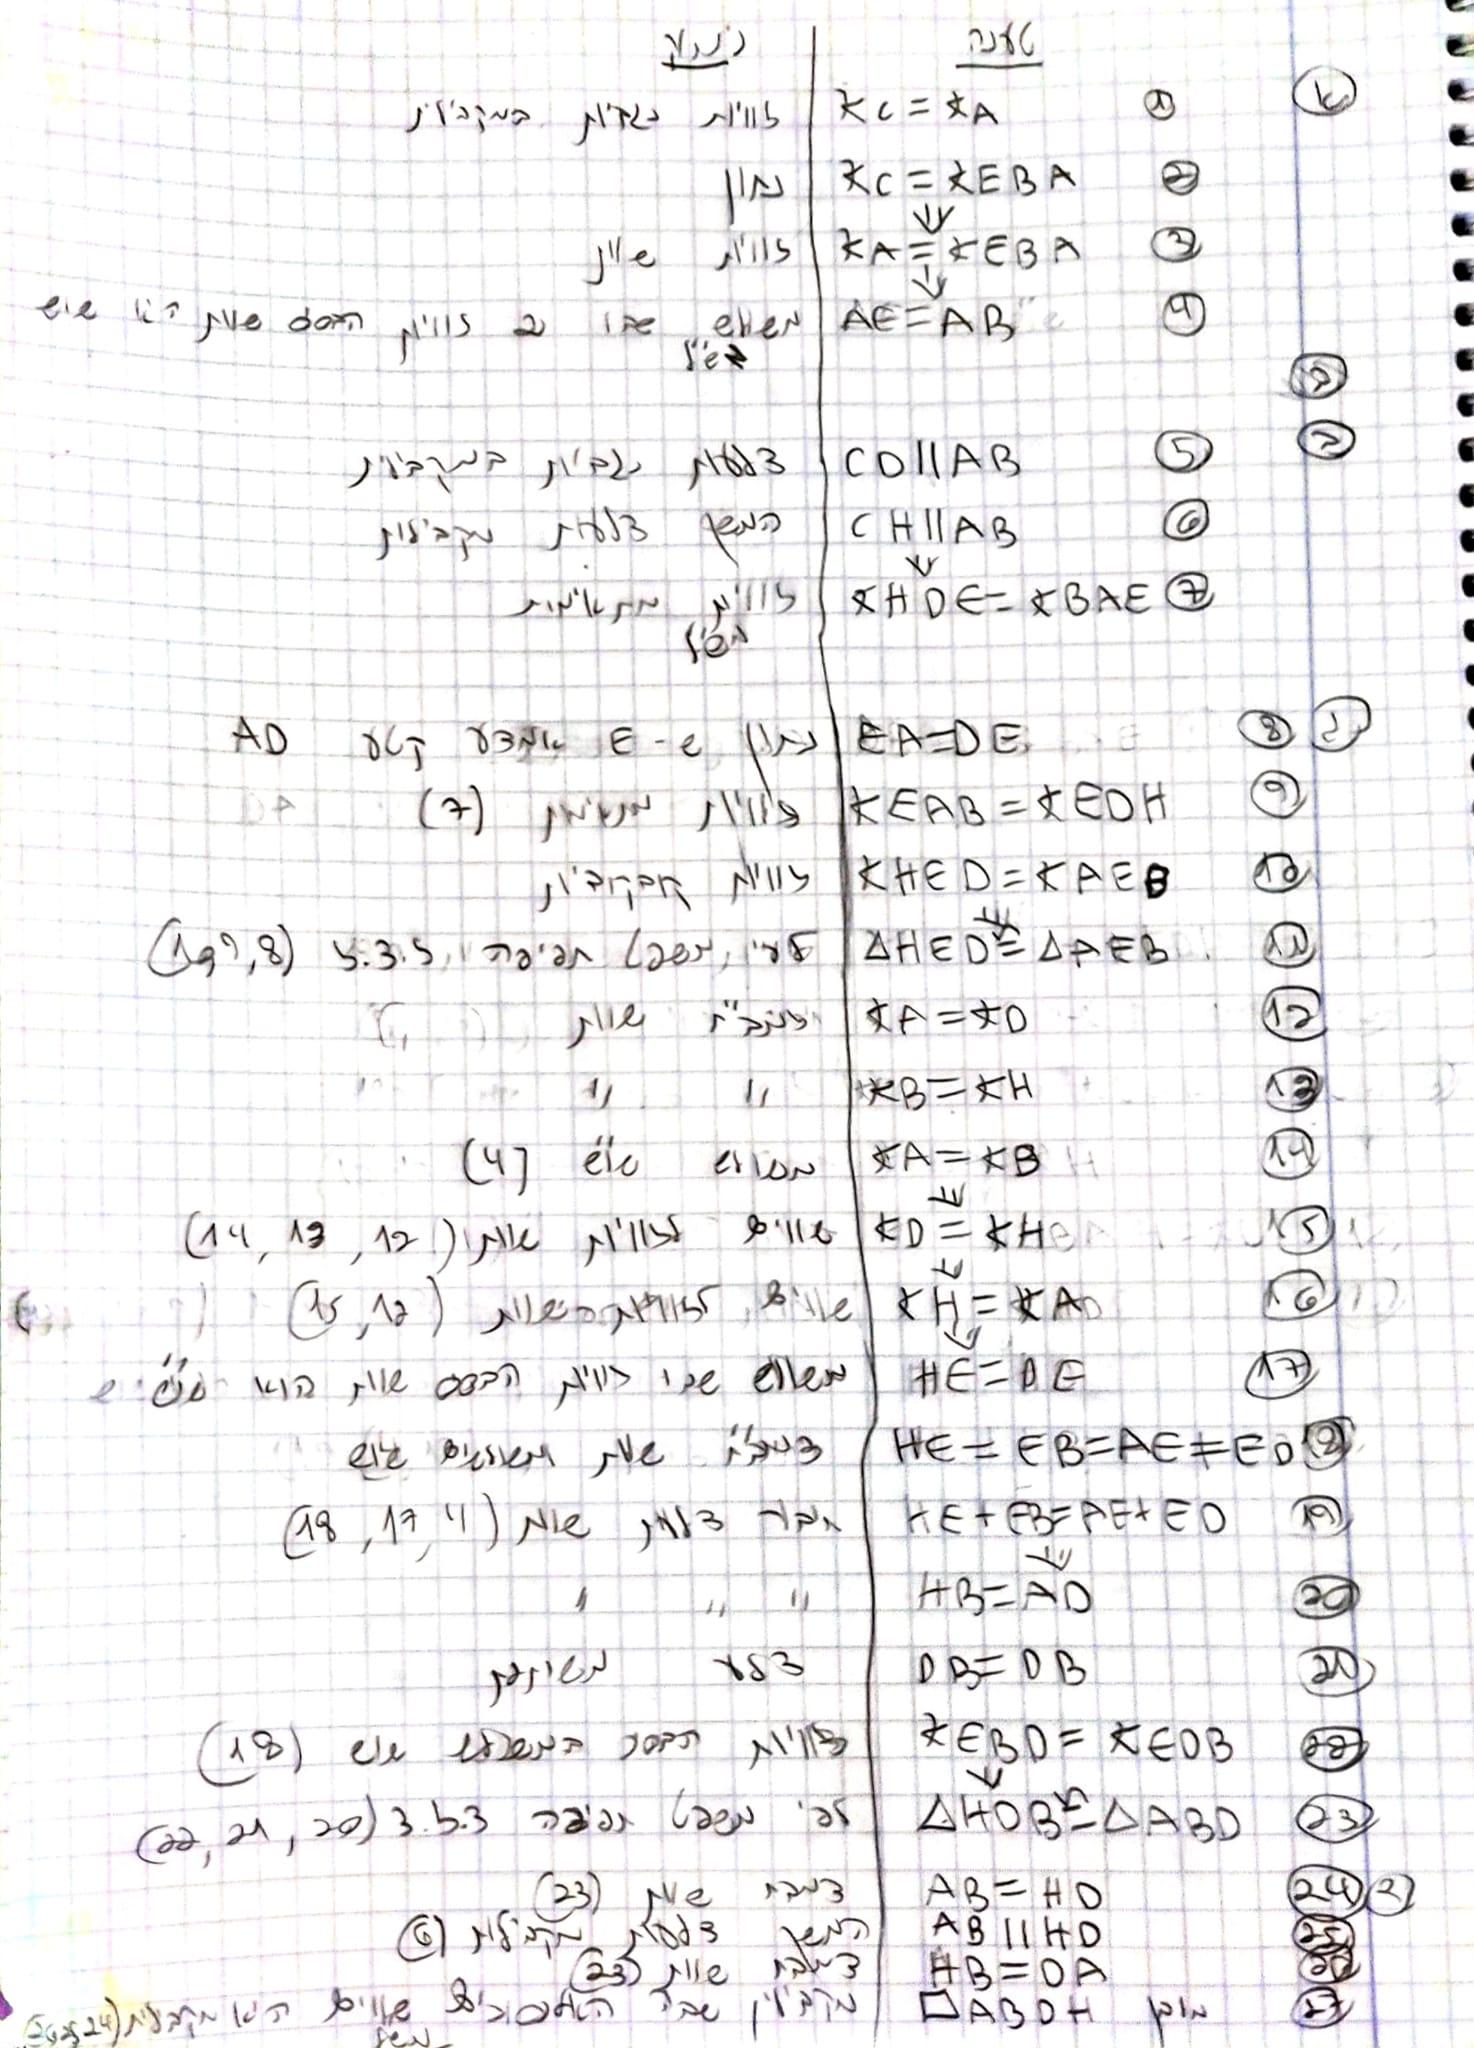 טענה | נימוק
א ① ∢C = ∢A | זוויות נגדיות במקבילית
② ∢C = ∢EBA | נתון
③ ∢A = ∢EBA | זוויות שוות
④ AE = AB | משולש שבו 2 זוויות הבסס שוות הוא שו״ש
מש״ל
ב
ב ⑤ CD || AB | צלעות נגדיות במקבילית
⑥ CH || AB | המשך צלעות מקבילות
⑦ ∢HDE = ∢BAE | זוויות מתאימות
מש״ל
ג ⑧ EA = DE | נתון ש-E אמצע קטע AD
⑨ ∢EAB = ∢EDH | זוויות מתאימות (7)
⑩ ∢HED = ∢AEB | זוויות קודקודיות
⑪ △HED ≅ △AEB | לפי משפט חפיפה ז.צ.ז (8,9,10)
⑫ ∢A = ∢D | שוות
⑬ ∢B = ∢H | " "
⑭ ∢A = ∢B | משולש שו״ש (4)
⑮ ∢D = ∢H | שווים לזוויות שוות (12, 13, 14)
⑯ ∢H = ∢A | שווים לזוויות שוות (12, 15)
⑰ HE = DE | משולש שבו זוויות הבסס שוות הוא שו״ש
⑱ HE = EB = AE = ED | שוות משולשים שוש
⑲ HE + EB = AE + ED | חיבור צלעות שוות (4, 17, 18)
⑳ HB = AD | " " "
㉑ DB = DB | צלע משותפת
㉒ ∢EBD = ∢EDB | זוויות הבסס במשולש שוש (18)
㉓ △HDB ≅ △ABD | לפי משפט חפיפה צ.ז.צ (20, 21, 22)
㉔ AB = HD | שוות (23)
㉕ AB || HD | המשך צלעות מקבילות (6)
㉖ HB = DA | שוות (23)
㉗ מובן □ABDH | שבה האלכסונים שווים היא מקבילית